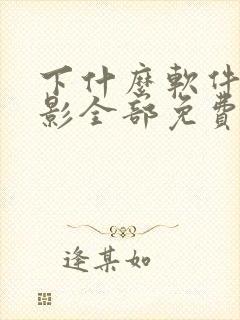 下什麼軟件
影全部免費
逢某如